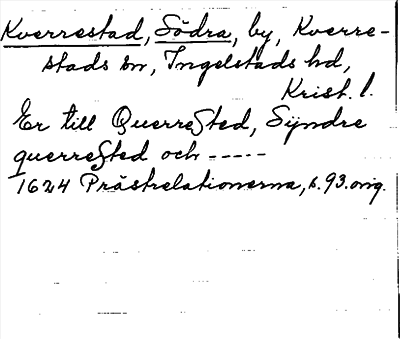 Kverrestad, Södra, by, Kverre-
stads sn, Ingelstads hd,
Krist. l.
Er till Querrested, Syndre
querrested och -----
1624 Prästrelationerna, s. 93. orig.